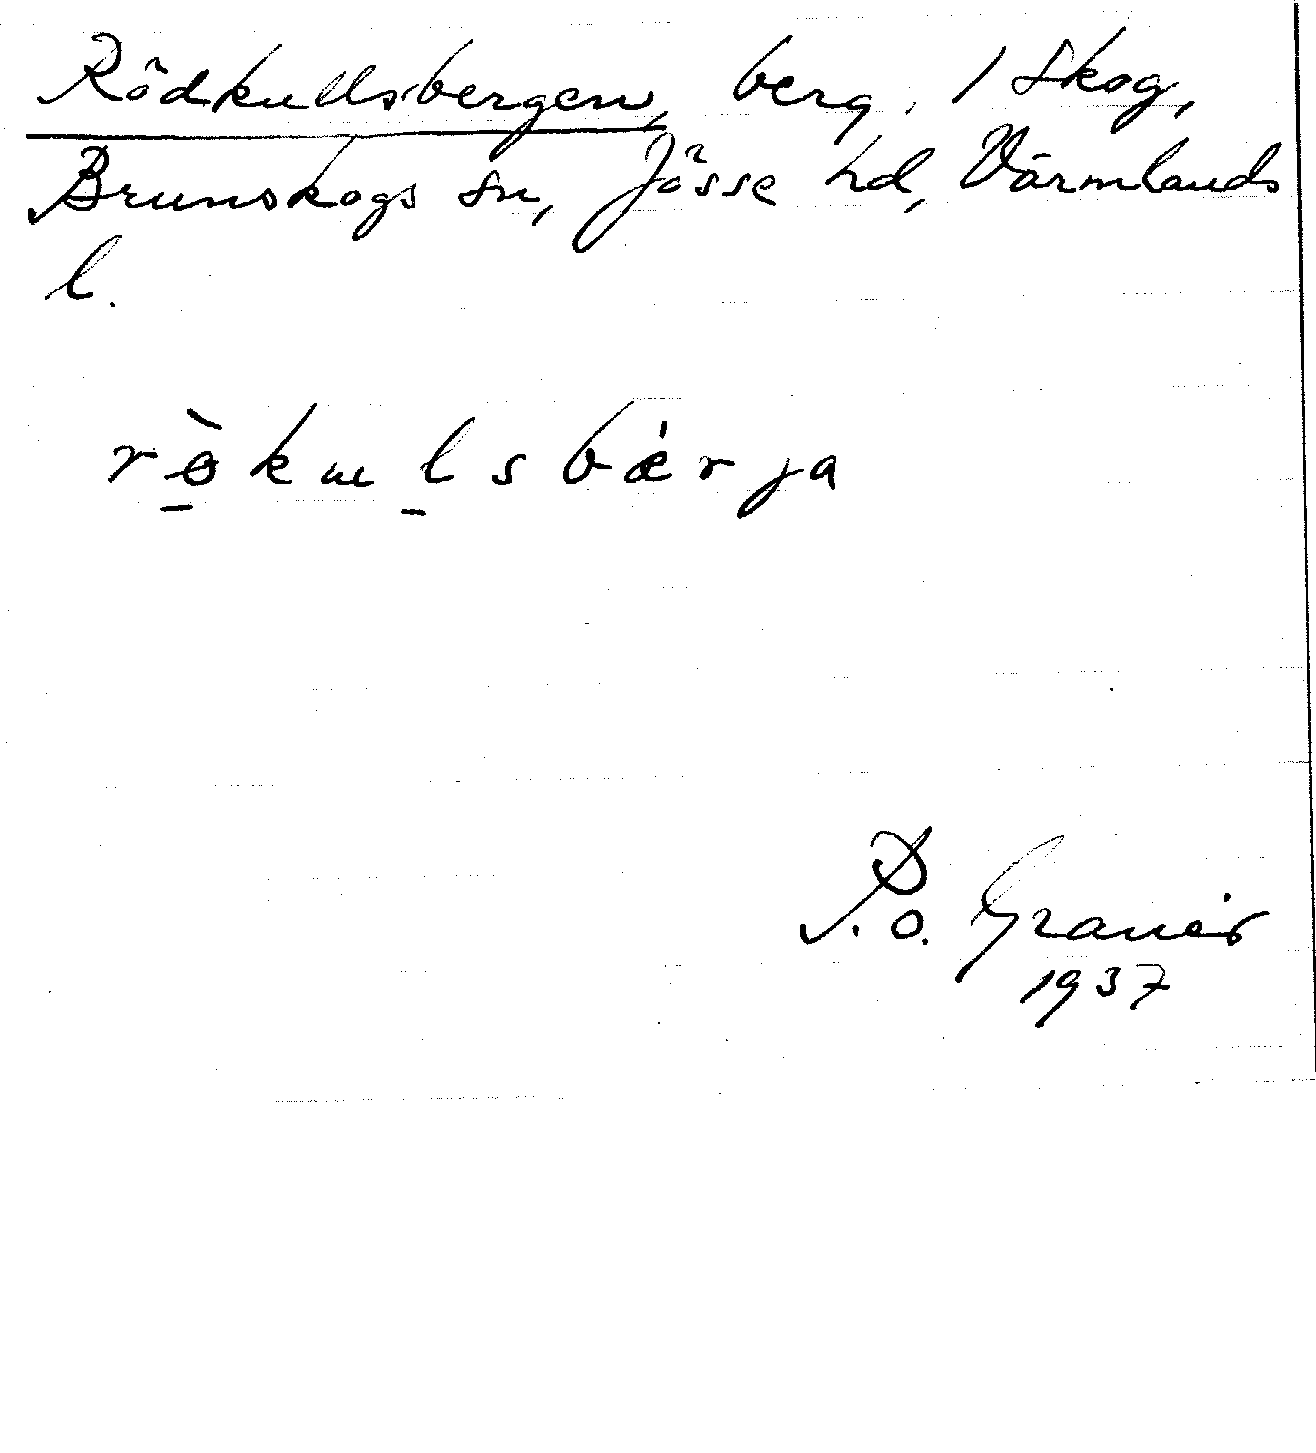 Rödkullsbergen, berg, 1 Skog,
Brunskogs sn, Jösse hd, Värmlands
l.
rø̠̀kɯl̠sbǽrja
P. O. Granér
1937